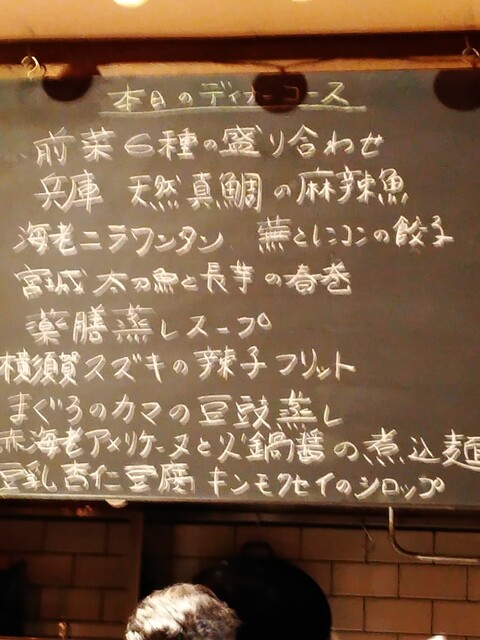 本日のディナーコース
前菜6種の盛り合わせ
兵庫 天然真鯛の麻辣魚
海老ニラワンタン 蕪とレンコンの餃子
宮城太刀魚と長芋の春巻
薬膳蒸しスープ
横須賀スズキの辣子フリット
まぐろのカマの豆豉蒸し
赤海老アメリケーヌと火鍋醤の煮込麺
豆乳杏仁豆腐 キンモクセイのシロップ